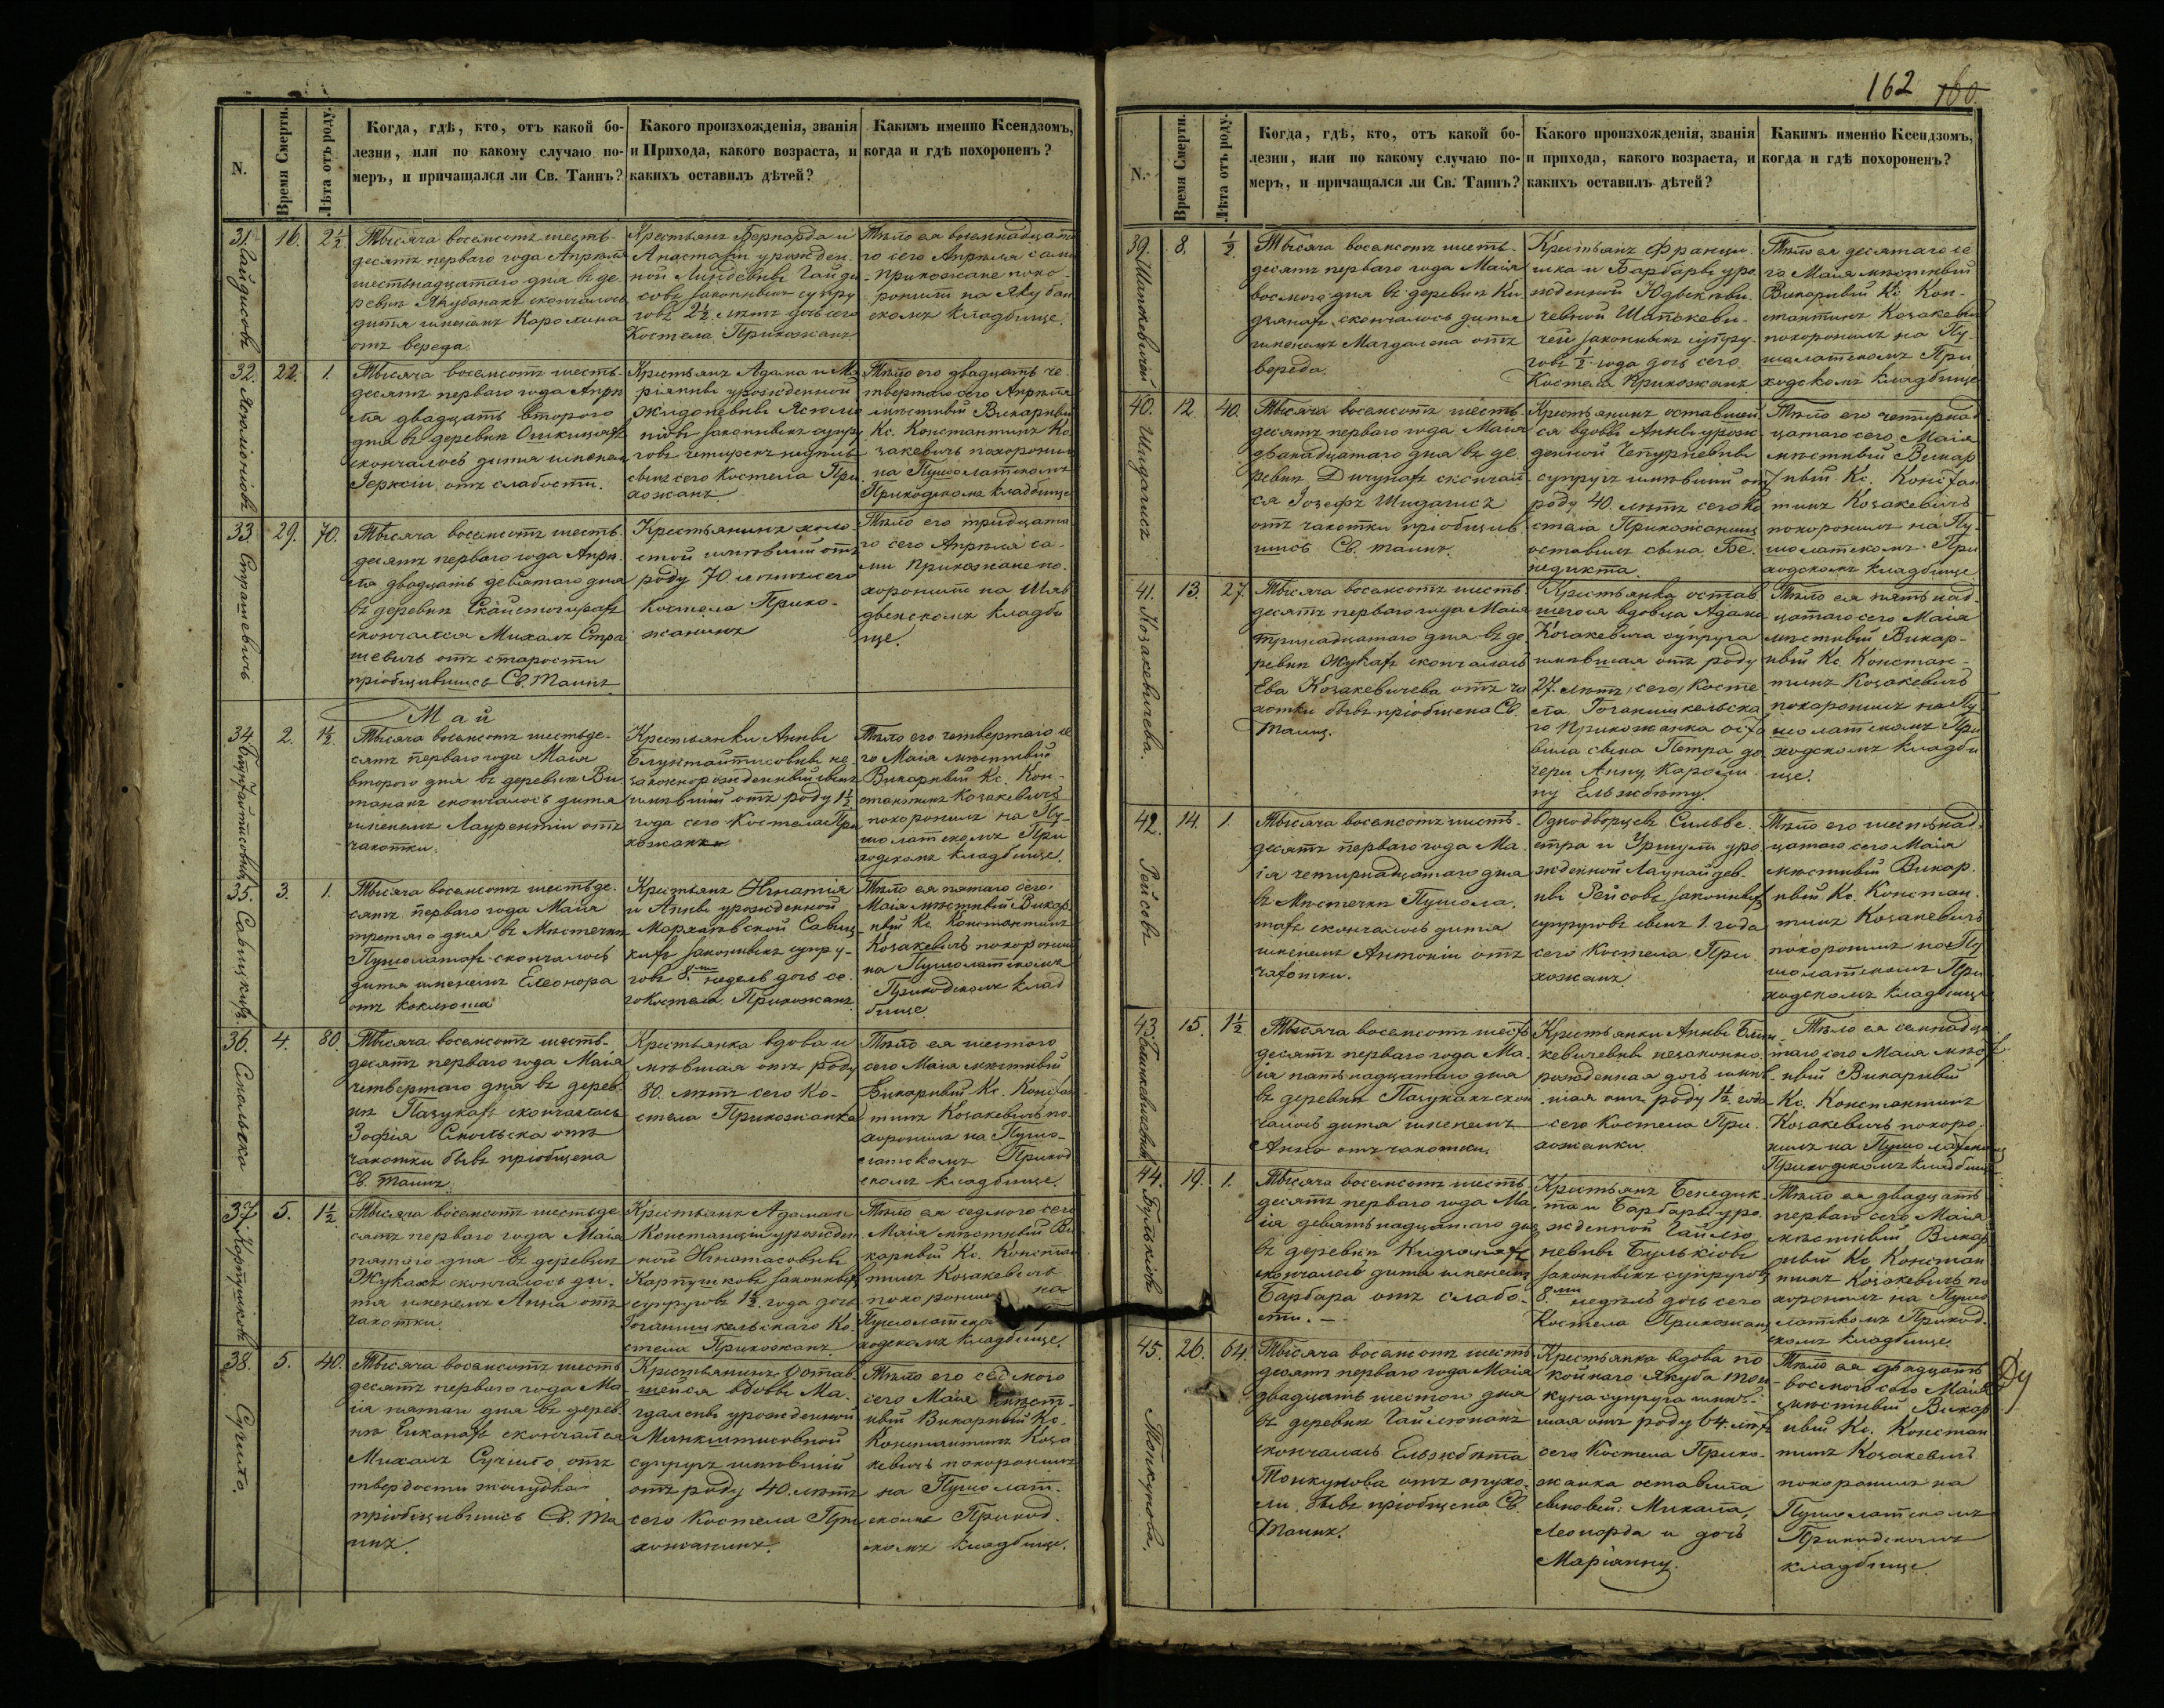 162 160
N.
Время Смерти.
Лѣта отъ роду.
Когда, гдѣ, кто, отъ какой бо-
лезни, или по какому случаю по-
меръ, и причащался ли Св. Таинъ?
Какого произхожденія, званія
и Прихода, какого возраста, и
какихъ оставилъ дѣтей?
Какимъ именно Ксендзомъ,
когда и гдѣ похороненъ?
31.
16.
2½
Тысяча восемсотъ шесть-
десятъ перваго года Апрѣля
шестнадцатаго дня въ де-
ревнѣ скончалось
дитя именемъ Каролина
отъ вереда.
Крестьянъ Бернарда и
Анастазіи урожден-
ной Гайду-
совъ законныхъ супру
говъ 2½ лѣтъ дочь сего
Костела Прихожанъ
Тѣло ея восемнадцата
го сего Апрѣля сами
прихожане похо-
ронили на Якубан
скомъ кладбище.
32.
22.
1.
Тысяча восемсотъ шесть-
десятъ перваго года Апрѣ
ля двадцать второго
дня въ деревнѣ
скончалось дитя именемъ
отъ слабости.
Крестьянъ Адама и Ма
ріянны урожденной
законныхъ супру
говъ
сынъ сего Костела При
хожанъ
Тѣло его двадцать че-
твертаго сего Апрѣля
мѣстный Викарный
Кс. Константинъ Ко
закевичъ похоронилъ
на Пушолатскомъ
Приходскомъ кладбище
33.
Страшевичъ
29.
70.
Тысяча восемсотъ шесть-
десятъ перваго года Апрѣ-
ля двадцать девятаго дня
въ деревнѣ
скончался Михалъ Стра
шевичъ отъ старости
пріобщившись Св. Таинъ
Крестьянинъ холо
стой имѣвшій отъ
роду 70 лѣтъ сего
Костела Прихо-
жанинъ
Тѣло его тридцата
го сего Апрѣля са-
ми прихожане по-
хоронили на
кладби
ще.
Май
34.
2.
1½
Тысяча восемсотъ шестьде-
сятъ перваго года Маія
второго дня въ деревнѣ Ви
скончалось дитя
именемъ Лаурентій отъ
чахотки.
Крестьянки Анны
не
законнорожденный сынъ
имѣвшій отъ роду 1½
года сего Костела При
хожанки
Тѣло его четвертаго се
го Маія мѣстный
Викарный Кс. Кон-
стантинъ Козакевичъ
похоронилъ на Пу-
шолатскомъ При
ходскомъ кладбище.
35.
Савицкихъ
3.
1.
Тысяча восемсотъ шестьде-
сятъ перваго года Маія
третяго дня въ Мѣстечкѣ
Пушолатахъ скончалось
дитя именемъ Елеонора
отъ коклюша
Крестьянъ Игнатія
и Анны урожденной
Савиц
кихъ законныхъ супру-
говъ 8ми недѣль дочь се-
го Костела Прихожанъ
Тѣло ея пятаго сего
Маія мѣстный Викар-
ный Кс. Константинъ
Козакевичъ похоронилъ
на Пушолатскомъ
Приходскомъ клад
бище.
36.
Смольска
4.
80.
Тысяча восемсотъ шесть-
десятъ перваго года Маія
четвертаго дня въ дерев-
нѣ Пазукахъ скончалась
Зофія Смольска отъ
чахотки бывъ пріобщена
Св. Таинъ.
Крестьянка вдова и
мѣвшая отъ роду
80. лѣтъ сего Ко-
стела Прихожанка
Тѣло ея шестого
сего Маія мѣстный
Викарный Кс. Констан-
тинъ Козакевичъ по-
хоронилъ на Пушо-
латскомъ Приход
скомъ кладбище.
37.
Карпушковъ
5.
1½
Тысяча восемсотъ шестьде
сятъ перваго года Маія
пятаго дня въ деревнѣ
Жукахъ скончалось ди-
тя именемъ Анна отъ
чахотки.
Крестьянъ Адама и
Констанціи урожден
ной Игнатасовны
Карпушковъ законныхъ
супруговъ 1½ года дочь
Роганишкельскаго Ко-
стела Прихожанъ
Тѣло ея седмого сего
Маія мѣстный Ви
карный Кс. Констан
тинъ Козакевичъ
похоронилъ на
ходскомъ кладбище.
38.
Сучило.
5.
40.
Тысяча восемсотъ шесть
десятъ перваго года Ма-
ія пятаго дня въ дерев-
нѣ скончался
Михалъ Сучило отъ
твердости желудка
пріобщившись Св. Та
инъ.
Крестьянинъ Остав-
шейся вдовы Ма-
гдалены урожденной
Минкштисовной
супругъ имѣвшій
отъ роду 40. лѣтъ
сего Костела При
хожанинъ.
Тѣло его седмого
сего Маія мѣст-
ный Викарный Кс.
Константинъ Коза
кевичъ похоронилъ
на Пушолат-
скомъ Приход-
скомъ кладбище.
N.
Время Смерти.
Лѣта отъ роду.
Когда, гдѣ, кто, отъ какой бо-
лезни, или по какому случаю по-
меръ, и причащался ли Св. Таинъ?
Какого произхожденія, званія
и прихода, какого возраста, и
какихъ оставилъ дѣтей?
Какимъ именно Ксендзомъ,
когда и гдѣ похороненъ?
39.
8.
½
Тысяча восемсотъ шесть-
десятъ перваго года Маія
восмого дня въ деревнѣ Ки
скончалось дитя
именемъ Магдалена отъ
вереда.
Крестьянъ Францы-
шка и Барбары уро
жденной Юдыцкеви-
чевной Шапокеви-
чей законныхъ супру-
говъ ½ года дочь сего
Костела Прихожанъ
Тѣло ея десятаго се
го Маія мѣстный
Викарный Кс. Кон-
стантинъ Козакевичъ
похоронилъ на Пу-
шалатскомъ При
ходскомъ кладбище
40.
Шидагисъ
12.
40.
Тысяча восемсотъ шесть-
десятъ перваго года Маія
двенадцатаго дня въ де-
ревнѣ Дичунахъ скончал
ся Іозефъ Шидагисъ
отъ чахотки пріобщив-
шись Св. таинъ.
Крестьянинъ оставшей
ся вдовы Анны урож-
денной Чепурнѣвны
супругъ имѣвшій отъ
роду 40. лѣтъ сего Ко
стела Прихожанинъ
оставилъ сына Бе-
недикта.
Тѣло его четырнад
цатаго сего Маія
мѣстный Викар
ный Кс. Констан
тинъ Козакевичъ
похоронилъ на Пу-
шолатскомъ При
ходскомъ кладбище
41.
Козакевичева.
13.
27.
Тысяча восемсотъ шесть-
десятъ перваго года Маія
тринадцатаго дня въ де
ревнѣ Жукахъ скончалась
Ева Козакевичева отъ ча
хотки бывъ пріобщена Св.
Таинъ.
Крестьянка остав
шегося вдовца Адама
Козакевича супруга
имѣвшая отъ роду
27. лѣтъ, сего Косте
ла Роганишкельска
го Прихожанка оста
вила сына Петра до
чери Анну, Кароли-
ну Ельжбѣту.
Тѣло ея пятьнад-
цатаго сего Маія
мѣстный Викар-
ный Кс. Констан-
тинъ Козакевичъ
похоронилъ на Пу-
шолатскомъ При
ходскомъ кладби
ще.
42.
Рейсовъ
14.
1.
Тысяча восемсотъ шесть-
десятъ перваго года Ма-
ія четырнадцатаго дня
въ Мѣстечкѣ Пушола-
тахъ скончалось дитя
именемъ Антоній отъ
чахотки.
Однодворцевъ Сильве-
стра и Уршули уро
жденной
ны Рейсовъ законныхъ
супруговъ сынъ 1. года
сего Костела При
хожанъ
Тѣло его шестьнад-
цатаго сего Маія
мѣстный Викар-
ный Кс. Констан-
тинъ Козакевичъ
похоронилъ на Пу
шолатскомъ При
ходскомъ кладбище
43.
15.
1½
Тысяча восемсотъ шесть
десятъ перваго года Ма-
ія пятьнадцатаго дня
въ деревнѣ Пазукахъ скон
чалось дитя именемъ
Анна отъ чахотки.
Крестьянки Анны
кевичевны незаконно
рожденная дочь имѣв-
шая отъ роду 1½ года
сего Костела При-
хожанки.
Тѣло ея семнадца-
таго сего Маія мѣст-
ный Викарный
Кс. Константинъ
Козакевичъ похоро-
нилъ на Пушолатскомъ
Приходскомъ кладбище
44.
Булькіовъ
19.
1.
Тысяча восемсотъ шесть
десятъ перваго года Ма-
ія девятьнадцатаго дня
въ деревнѣ
скончалось дитя именемъ
Барбара отъ слабо-
сти.
Крестьянъ Бенедик
та и Барбары уро-
жденной Гайлю
невны Булькіовъ
законныхъ супруговъ
8ми недѣль дочь сего
Костела Прихожанъ
Тѣло ея двадцать
перваго сего Маія
мѣстный Викар
ный Кс. Констан
тинъ Козакевичъ по
хоронилъ на Пушо
латскомъ Приход-
скомъ кладбище.
45.
Тонкунова,
26.
64.
Тысяча восемсотъ шесть
десятъ перваго года Маія
двадцать шестого дня
въ деревнѣ Гайлюнахъ
скончалась Ельжбѣта
Тонкунова отъ опухо-
ли, бывъ пріобщена Св.
Таинъ.
Крестьянка вдова по
койнаго Якуба Тон-
куна супруга имѣв-
шая отъ роду 64. лѣтъ
сего Костела Прихо-
жанка оставила
сыновей: Михала,
Леонарда и дочь
Маріанну.
Тѣло ея двадцать
восмого сего Маія
мѣстный Викар
ный Кс. Констан
тинъ Козакевичъ
похоронилъ на
Пушолатскомъ
Приходскомъ
кладбище.